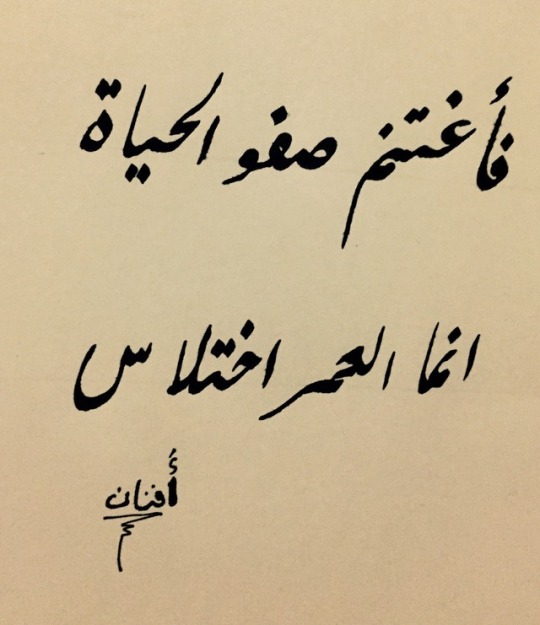 فأغتنم صفو الحياة
انما العمر اختلاس
أفنان